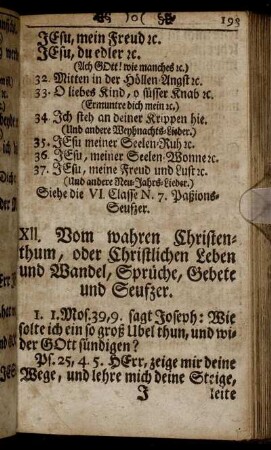 )o( 193
JEsu, mein Freud ꝛc.
JEsu, du edler ꝛc.
(Ach GOtt! wie manches ꝛc.)
32. Mitten in der Höllen-Angst ꝛc.
33. O liebes Kind, o süsser Knab ꝛc.
(Ermuntre dich mein ꝛc.)
34. Ich steh an deiner Krippen hie.
(Und andere Weyhnachts-Lieder.)
35. JEsu meiner Seelen-Ruh ꝛc.
36. JEsu, meiner Seelen-Wonne ꝛc.
37. JEsu, meine Freud und Lust ꝛc.
(Und andere Neu-Jahrs-Lieder.)
Siehe die VI. Classe N. 7. Paßions-
Seufzer.
XII. Vom wahren Christen-
thum, oder Christlichen Leben
und Wandel, Sprüche, Gebete
und Seufzer.
1. 1. Mos. 39, 9. sagt Joseph: Wie
solte ich ein so groß Ubel thun, und wi-
der GOtt sündigen?
Ps. 25, 4. 5. HErr, zeige mir deine
Wege, und lehre mich deine Steige,
J leite